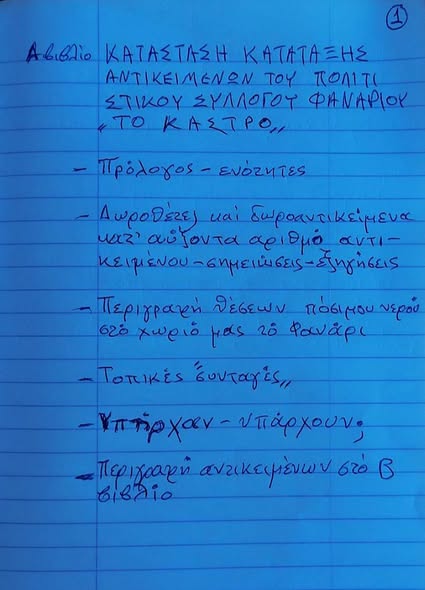 1
Α βιβλίο ΚΑΤΑΣΤΑΣΗ ΚΑΤΑΤΑΞΗΣ
ΑΝΤΙΚΕΙΜΕΝΩΝ ΤΟΥ ΠΟΛΙΤΙ
ΣΤΙΚΟΥ ΣΥΛΛΟΓΟΥ ΦΑΝΑΡΙΟΥ
„ ΤΟ ΚΑΣΤΡΟ „
- Πρόλογος - ενότητες
- Δωροθέτες και δωροαντικείμενα
κατ' αύξοντα αριθμό αντι-
κειμένου - σημειώσεις - εξηγήσεις
- Περιγραφή θέσεων πόσιμου νερού
στό χωριό μας το Φανάρι
- Τοπικές "συνταγές„
- Υπήρχαν - υπάρχουν;
- Περιγραφή αντικειμένων στό Β
βιβλίο